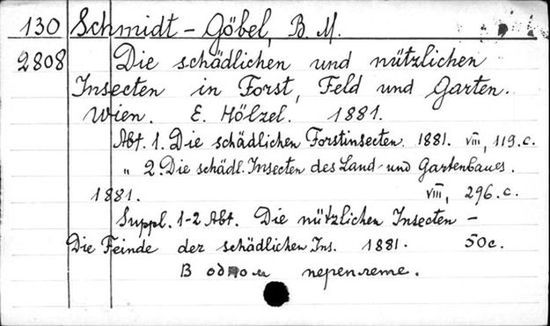 130 Schmidt-Göbel, B. M.
2808 Die schädlichen und nützlichen
Insecten in Forst, Feld und Garten.
Wien. E. Hölzel. 1881.
Abt. 1. Die schädlichen Forstinsecten. 1881. VIII, 119.c.
„ 2. Die schädl. Insecten des Land- und Gartenbaues.
1881. VIII, 296.c.
Suppl. 1-2 Abt. Die nützlichen Insecten -
Die Feinde der schädlichen Ins. 1881. 50c.
В одном переплете.